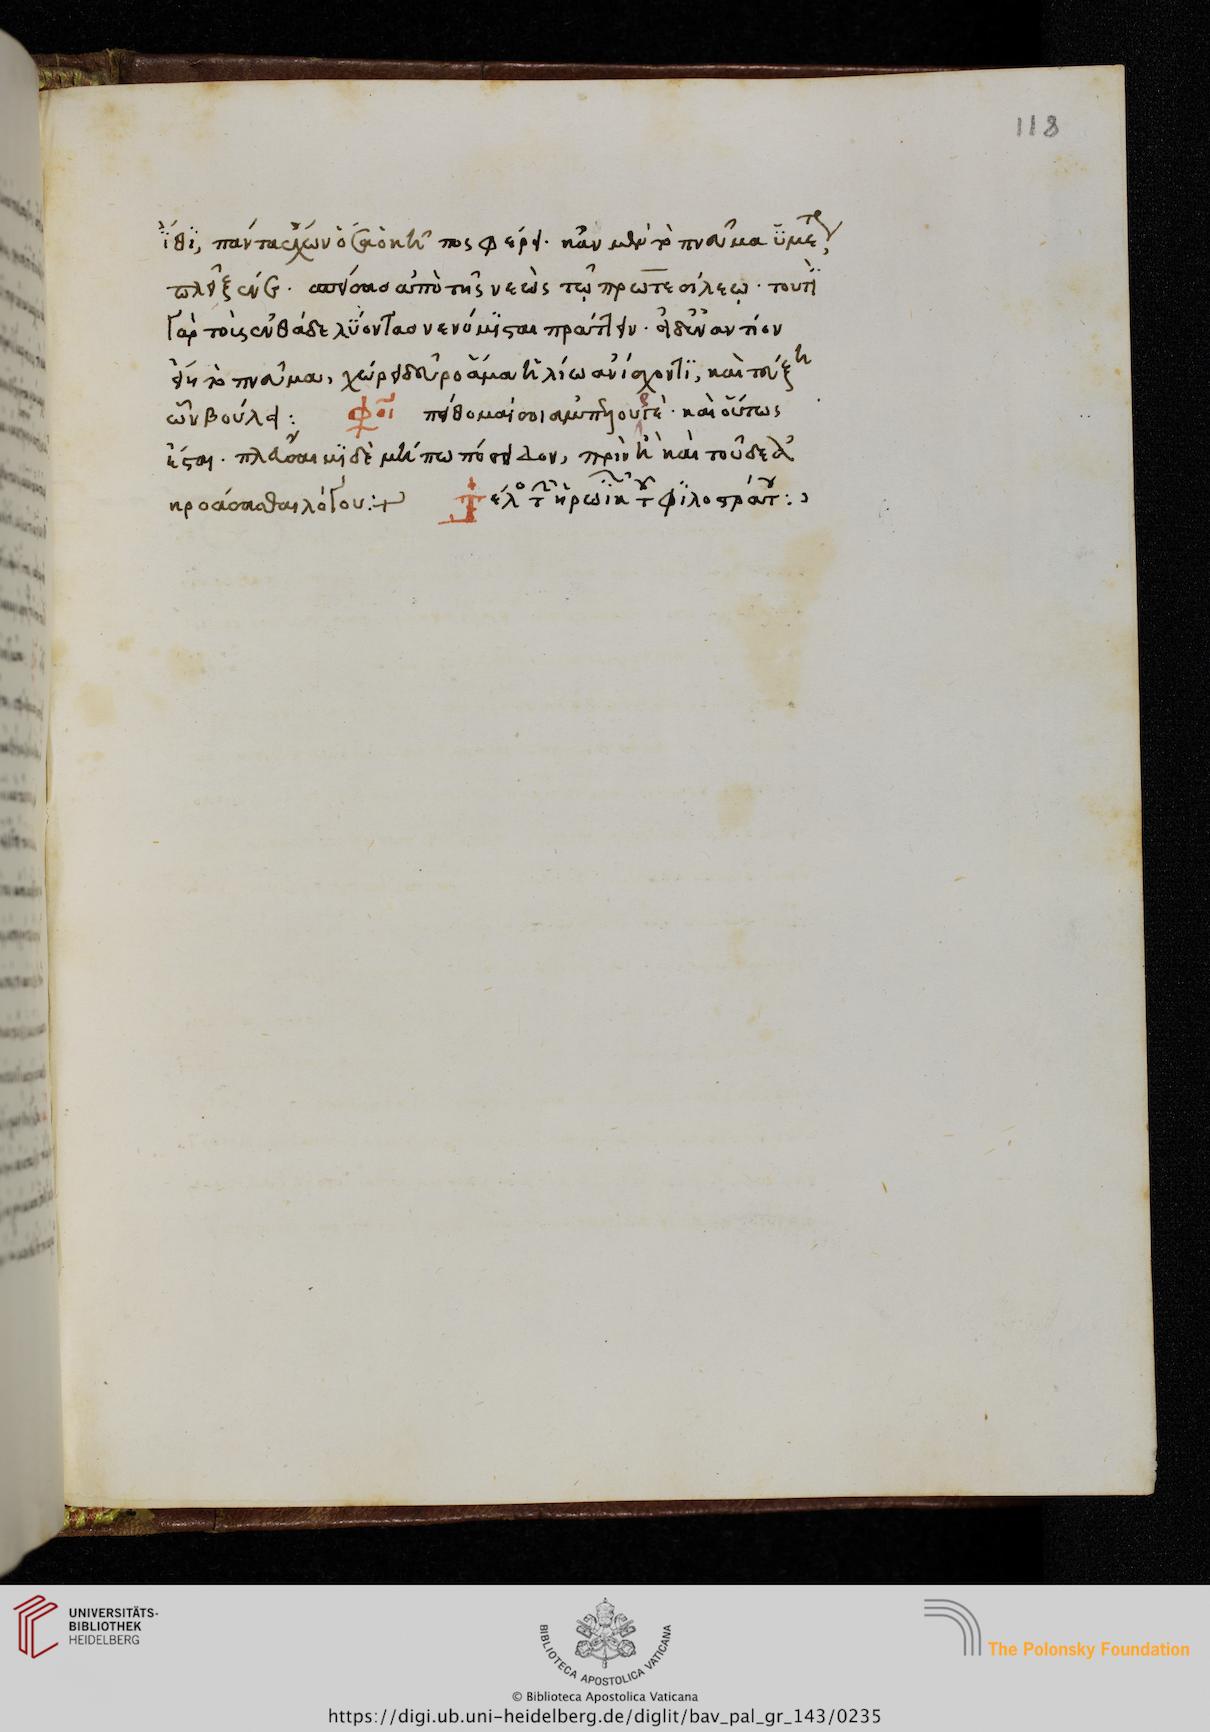 118
ἴθι, πάντα ἔχων ὁπόσα ὁ κῆπος φέρει. κἂν μὲν τὸ πνεῦμα ὑμέτερον
πλεῖ ξένε. σπείσας ἀπὸ τῆς νεὼς τῷ πρωτεσίλεῳ. τουτὶ
γὰρ τοῖς ἐνθάδε λύοντας νενόμισται πράττειν. εἰ δ' ἐναντίον
εἴη τὸ πνεῦμα, χώρει δεῦρο ἅμα ἡλίῳ ἀνίσχοντι, καὶ τεύξη
ὧν βούλει:    φοι    πείθομαί σοι ἀμπελουργὲ. καὶ οὕτως
ἔσται. πλεύσαιμι δὲ μήπω πόσειδον, πρὶν ἢ καὶ τοῦδε ἀ
κροάσασθαι λόγου:+    Τέλος τῶν ἡρωϊκῶν τοῦ φιλοστράτου:
UNIVERSITÄTS-
BIBLIOTHEK
HEIDELBERG
BIBLIOTECA APOSTOLICA VATICANA
The Polonsky Foundation
© Biblioteca Apostolica Vaticana
https://digi.ub.uni-heidelberg.de/diglit/bav_pal_gr_143/0235